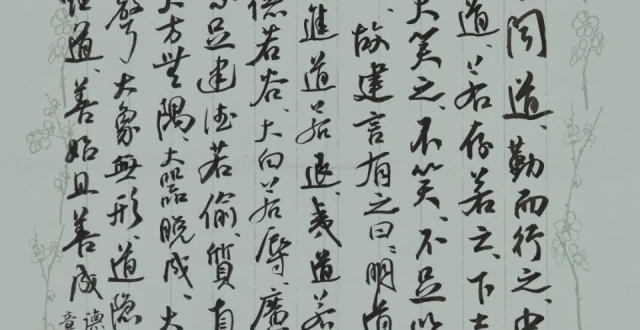 闻道、勤而行之、中
道、若存若亡、下士
大笑之、不笑、不足以
故建言有之曰、明道
進道若退、夷道若
德若谷、大白若辱、廣
不足建德若偷、質真
大方無隅、大器晚成、大
聲、大象無形、道隐
道、善始且善成
德
章